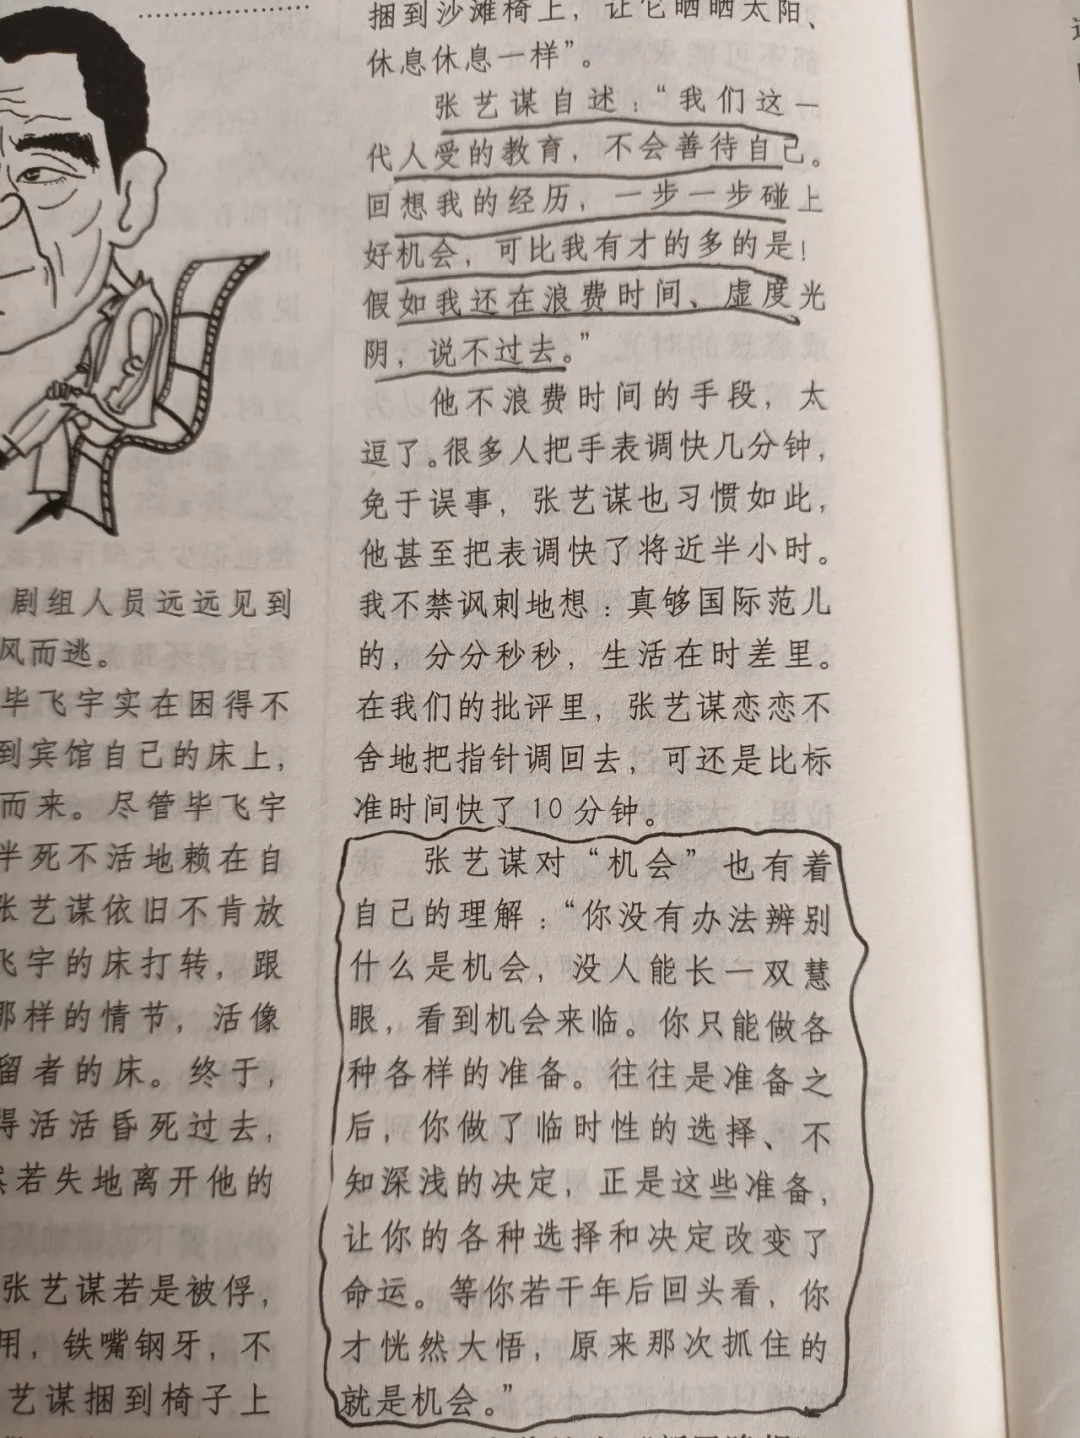 剧组人员远远见到
风而逃。
毕飞宇实在困得不
到宾馆自己的床上，
而来。尽管毕飞宇
半死不活地赖在自
张艺谋依旧不肯放
飞宇的床打转，跟
那样的情节，活像
留者的床。终于，
得活活昏死过去，
然若失地离开他的
张艺谋若是被俘，
用，铁嘴钢牙，不
艺谋捆到椅子上
捆到沙滩椅上，让它晒晒太阳、
休息休息一样”。
张艺谋自述：“我们这一
代人受的教育，不会善待自己。
回想我的经历，一步一步碰上
好机会，可比我有才的多的是！
假如我还在浪费时间、虚度光
阴，说不过去。”
他不浪费时间的手段，太
逗了。很多人把手表调快几分钟，
免于误事，张艺谋也习惯如此，
他甚至把表调快了将近半小时。
我不禁讽刺地想：真够国际范儿
的，分分秒秒，生活在时差里。
在我们的批评里，张艺谋恋恋不
舍地把指针调回去，可还是比标
准时间快了10分钟。
张艺谋对“机会”也有着
自己的理解：“你没有办法辨别
什么是机会，没人能长一双慧
眼，看到机会来临。你只能做各
种各样的准备。往往是准备之
后，你做了临时性的选择、不
知深浅的决定，正是这些准备，
让你的各种选择和决定改变了
命运。等你若干年后回头看，你
才恍然大悟，原来那次抓住的
就是机会。”